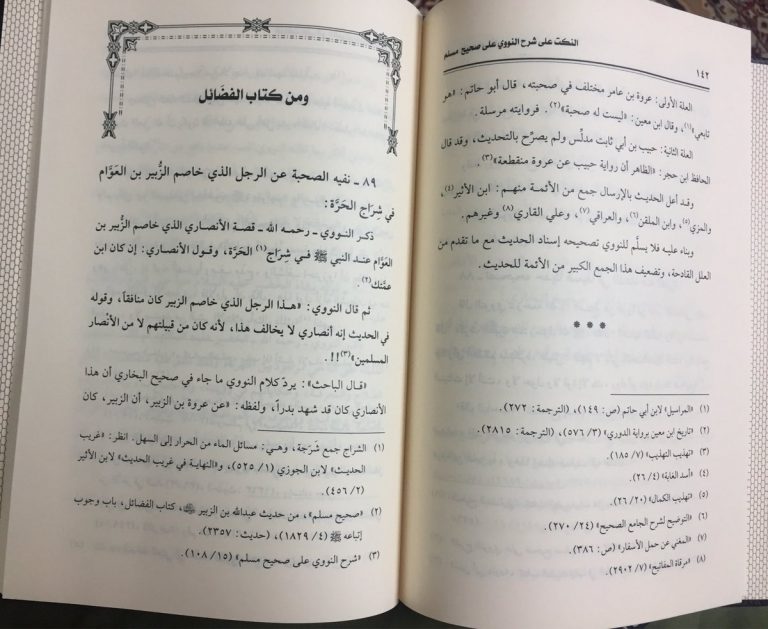 النكت على شرح النووي على صحيح مسلم
١٤٢
العلة الأولى: عروة بن عامر مختلف في صحبته، قال أبو حاتم: «هو
تابعي»(١)، وقال ابن معين: «ليست له صحبة»(٢). فروايته مرسلة.
العلة الثانية: حبيب بن أبي ثابت مدلّس ولم يصرّح بالتحديث، وقد قال
الحافظ ابن حجر: «الظاهر أن رواية حبيب عن عروة منقطعة»(٣).
وقد أعل الحديث بالإرسال جمع من الأئمة منهم: ابن الأثير(٤)،
والمزي(٥)، وابن الملقن(٦)، والعراقي(٧)، وعلي القاري(٨) وغيرهم.
وبناء عليه فلا يسلَّم للنووي تصحيحه إسناد الحديث مع ما تقدم من
العلل القادحة، وتضعيف هذا الجمع الكبير من الأئمة للحديث.
* * *
(١) «المراسيل» لابن أبي حاتم (ص: ١٤٩)، (الترجمة: ٢٧٢).
(٢) «تاريخ ابن معين برواية الدوري» (٣/ ٥٧٦)، (الترجمة: ٢٨١٥).
(٣) «تهذيب التهذيب» (٧/ ١٨٥).
(٤) «أسد الغابة» (٤/ ٢٦).
(٥) «تهذيب الكمال» (٢٠/ ٢٦).
(٦) «التوضيح لشرح الجامع الصحيح» (٢٤/ ٢٧٠).
(٧) «المغني عن حمل الأسفار» (ص: ٣٨٦).
(٨) «مرقاة المفاتيح» (٧/ ٢٩٠٢).
ومن كتاب الفضائل
٨٩ ـ نفيه الصحبة عن الرجل الذي خاصم الزُّبير بن العَوَّام
في شِرَاج الحَرَّة:
ذكر النووي ـ رحمه الله ـ قصة الأنصاري الذي خاصم الزُّبير بن
العَوَّام عند النبي ﷺ في شِرَاج(١) الحَرَّة، وقول الأنصاري: إن كان ابن
عمَّتك(٢).
ثم قال النووي: «هذا الرجل الذي خاصم الزبير كان منافقاً، وقوله
في الحديث إنه أنصاري لا يخالف هذا، لأنه كان من قبيلتهم لا من الأنصار
المسلمين»(٣)!!.
«قال الباحث»: يردّ كلام النووي ما جاء في صحيح البخاري أن هذا
الأنصاري كان قد شهد بدراً، ولفظه: «عن عروة بن الزبير، أن الزبير، كان
(١) الشراج جمع شَرَجة، وهي: مسائل الماء من الحرار إلى السهل. انظر: «غريب
الحديث» لابن الجوزي (١/ ٥٢٥)، و«النهاية في غريب الحديث» لابن الأثير
(٢/ ٤٥٦).
(٢) «صحيح مسلم»، من حديث عبدالله بن الزبير ، كتاب الفضائل، باب وجوب
إتباعه ﷺ (٤/ ١٨٢٩)، (حديث: ٢٣٥٧).
(٣) «شرح النووي على صحيح مسلم» (١٥/ ١٠٨).